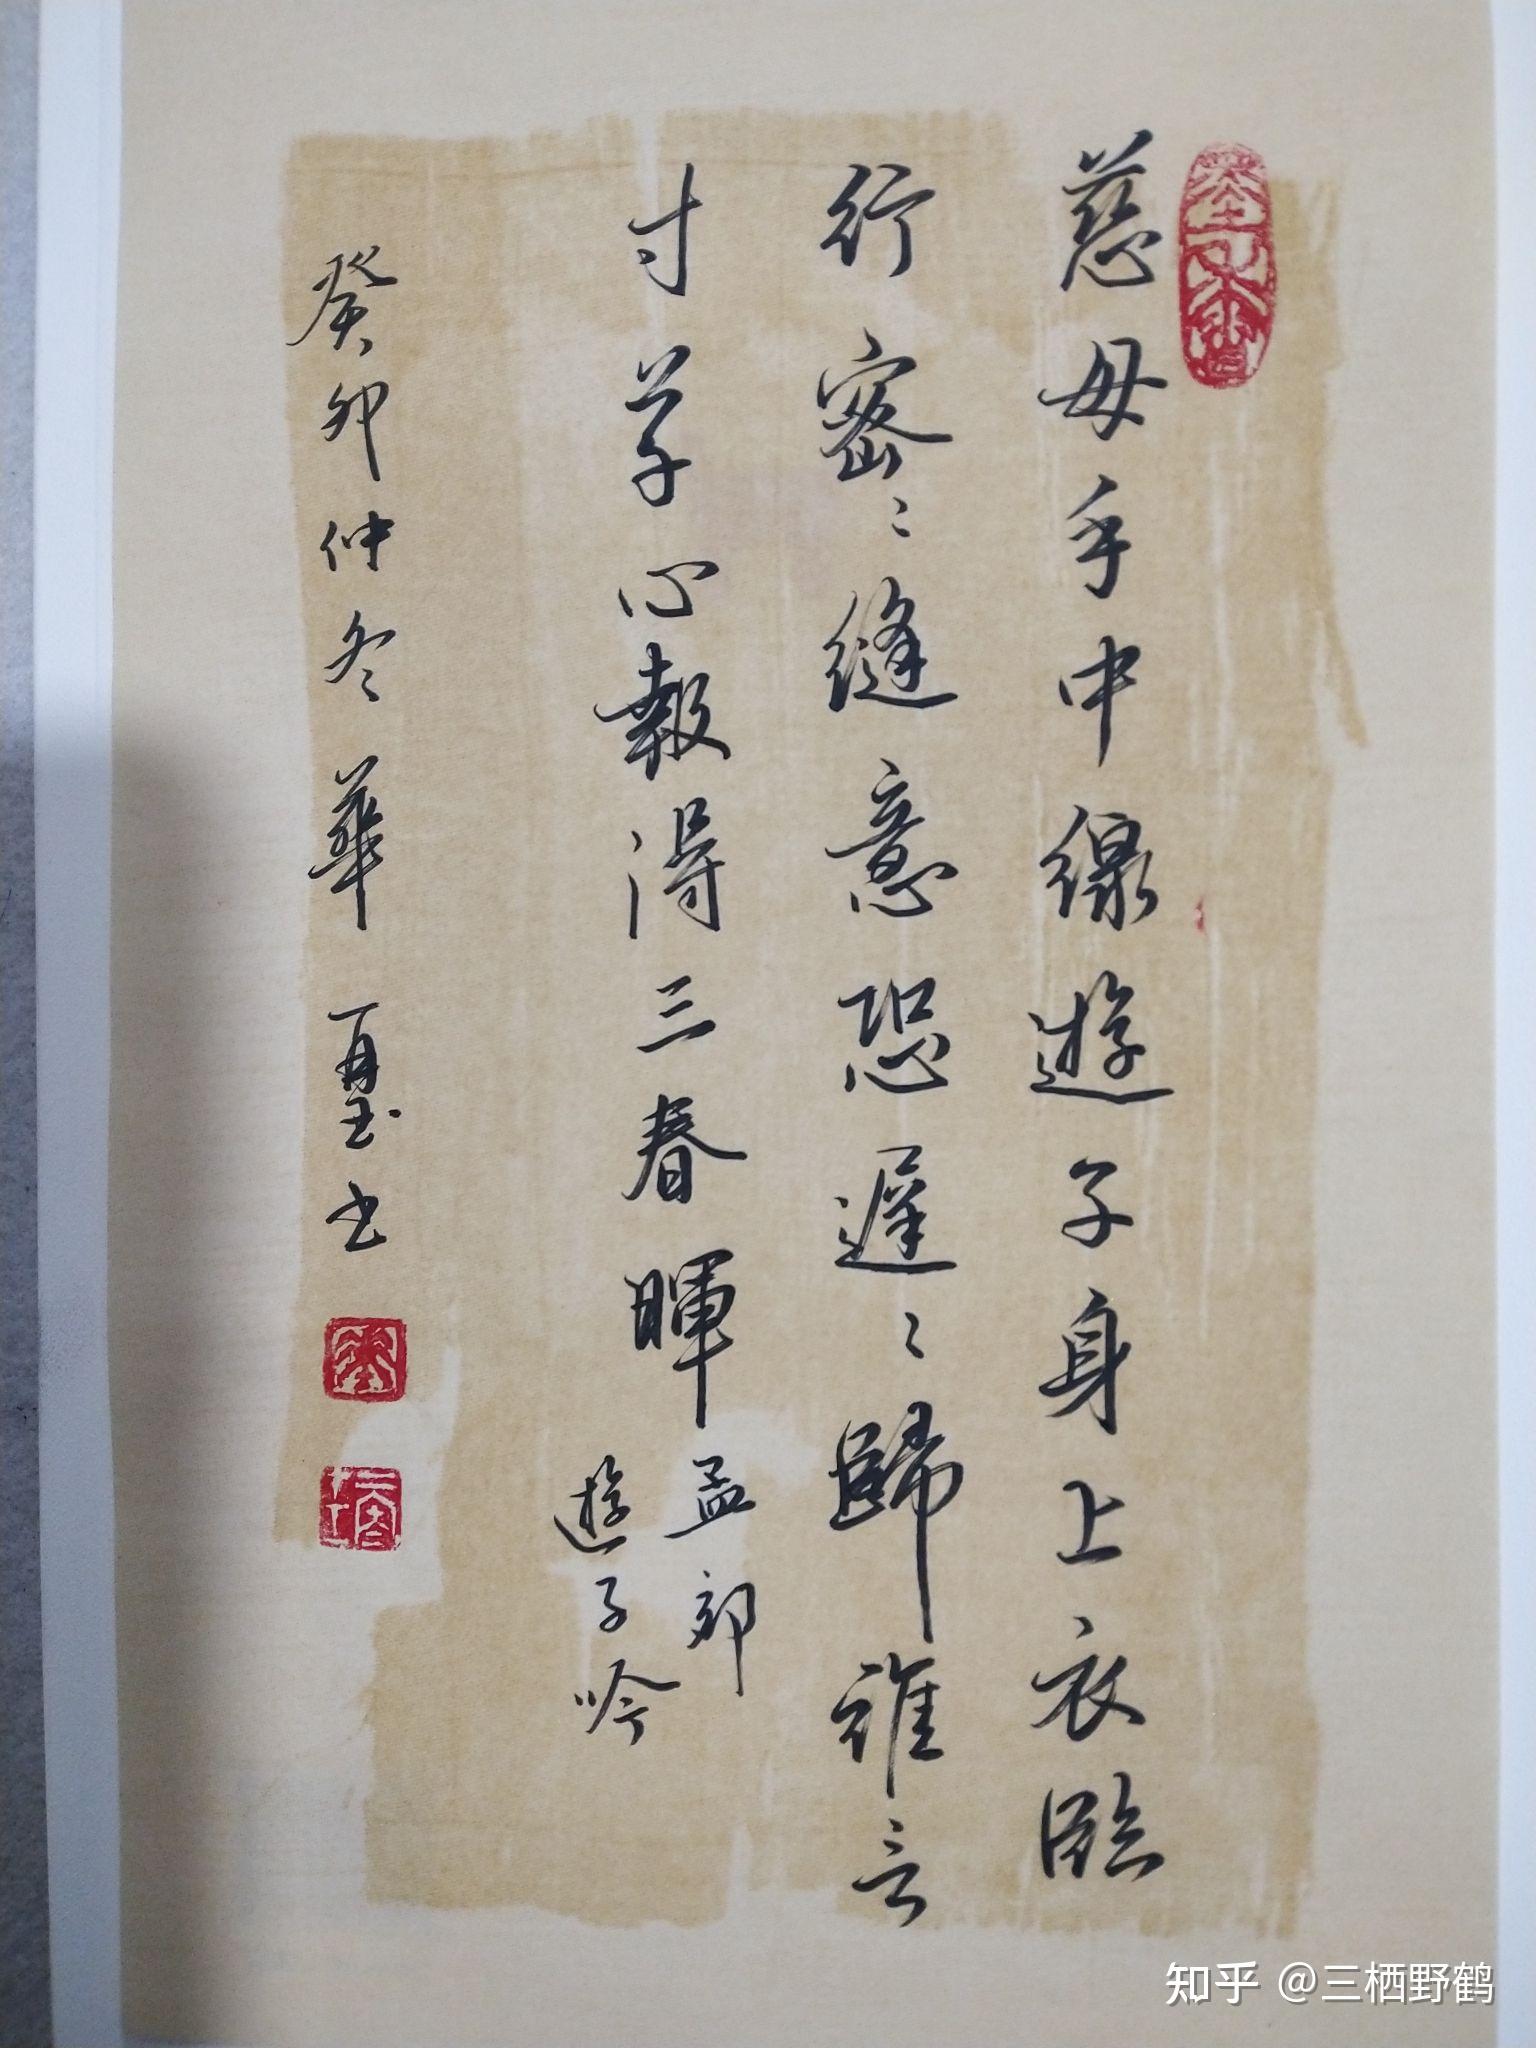 慈母手中線遊子身上衣臨
行密〻縫意恐遲〻歸誰言
寸草心報得三春暉
孟郊
遊子吟
癸卯仲冬華
書
知乎 @三栖野鹤